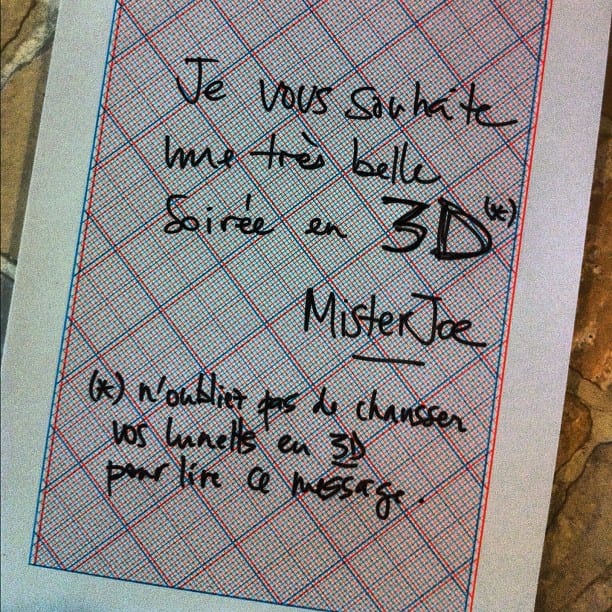 Je vous souhaite
une très belle
soirée en 3D(*)
MisterJoe
(*) n'oubliez pas de chausser
vos lunettes en 3D
pour lire ce message.